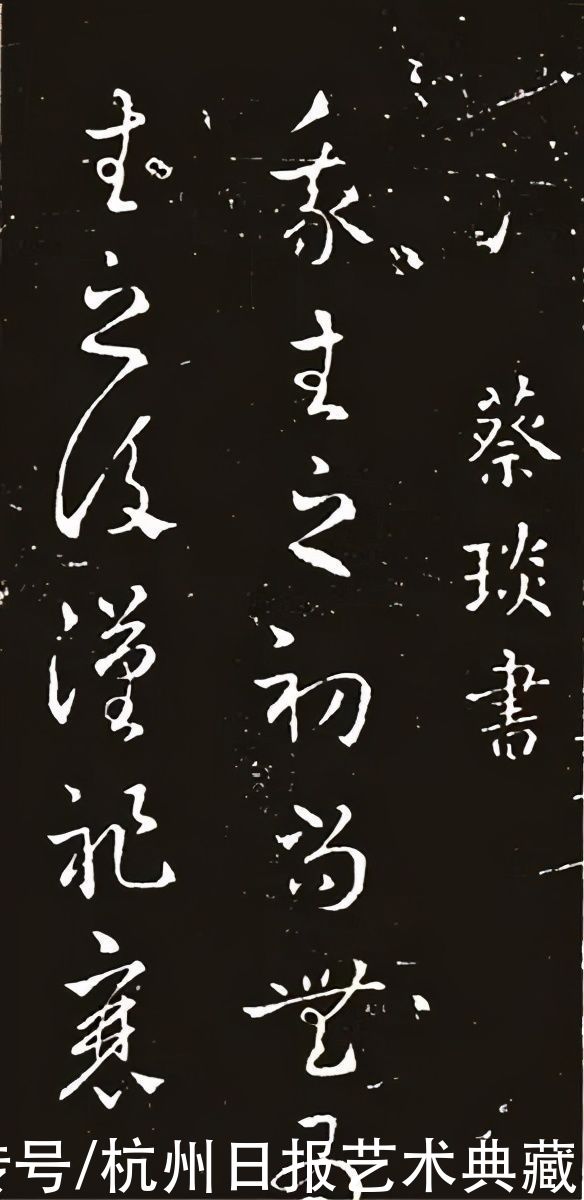 蔡琰書
我生之初尚無
生之後漢祚衰
号/杭州日报艺术典藏